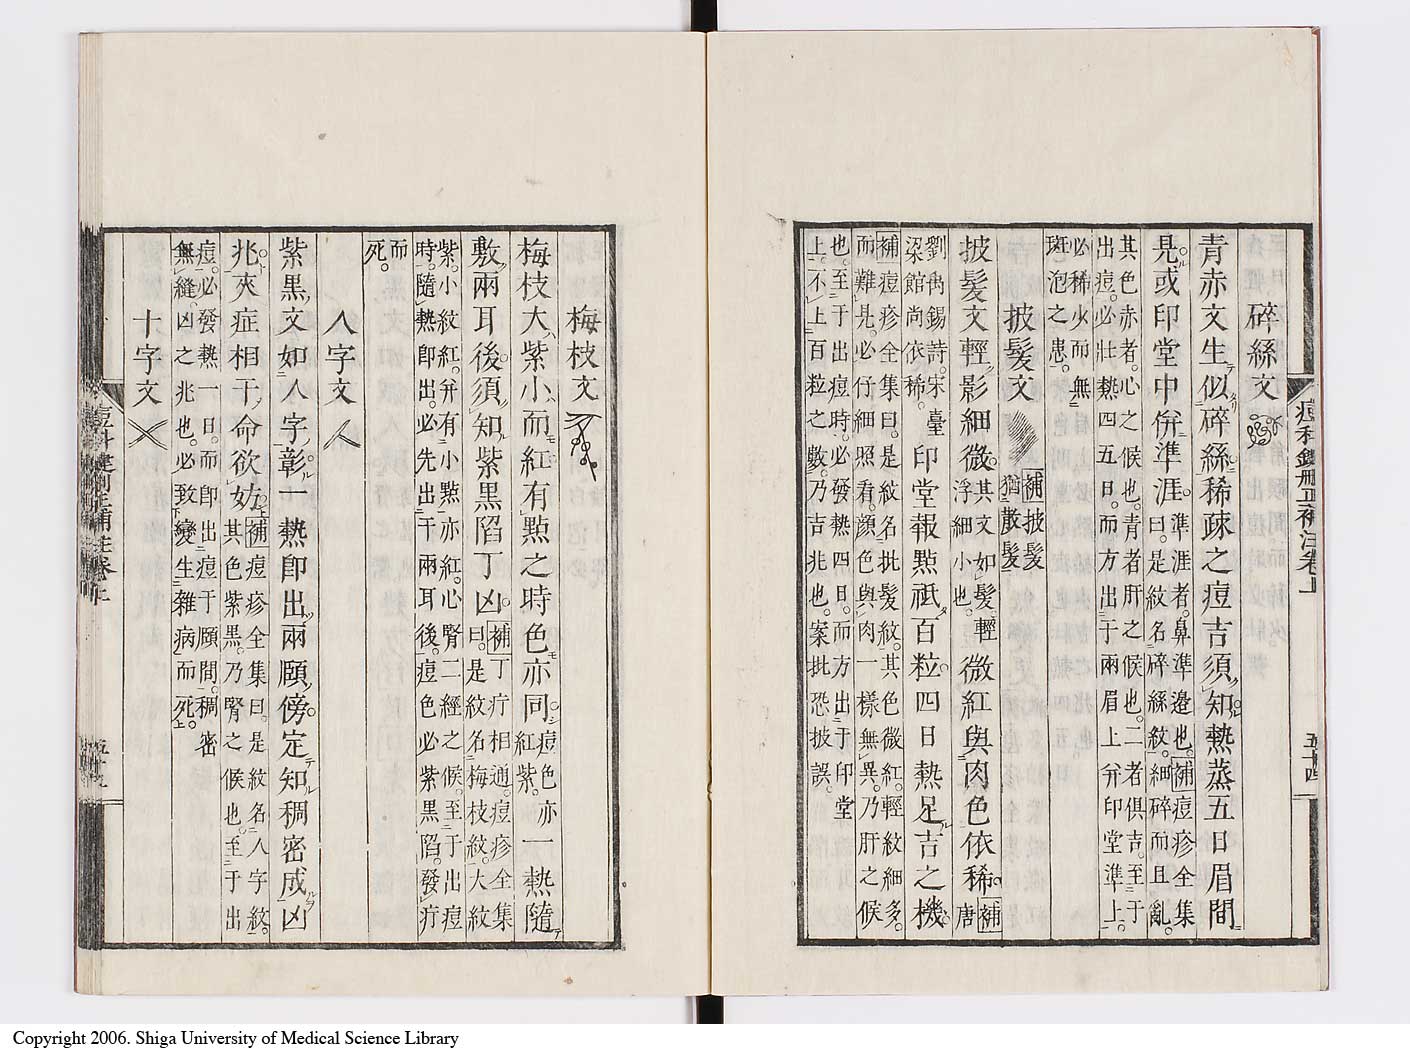 碎絲文
青赤文生似碎絲稀疎之痘吉須知熱蒸五日眉間
見或印堂中併準涯準涯者鼻準邊也補痘疹全集
曰是紋名碎絲紋細碎而且亂
其色赤者心之候也青者肝之候也二者俱吉至于
出痘必壯熱四五日而方出于兩眉上并印堂準上
必稀少而無
斑泡之患
披髪文 補披髪
猶散髪
披髪文輕影細微其文如髪輕
浮細小也微紅與肉色依稀補唐
劉禹錫詩宋臺
梁館尚依稀印堂報點祇百粒四日熱足吉之機
補痘疹全集曰是紋名批髪紋其色微紅輕紋細多
而難見必仔細照看顔色與肉一樣無異乃肝之候
也至于出痘時必發熱四日而方出于印堂
上不上百粒之數乃吉兆也案批恐披誤
痘科鍵刪正補注卷上 五十四
梅枝文
梅枝大紫小而紅有點之時色亦同痘色亦
紅紫一熱隨
敷兩耳後須知紫黑陷丁凶補丁疔相通痘疹全集
曰是紋名梅枝紋大紋
紫小紋紅并有小點亦紅心腎二經之候至于出痘
時隨熱即出必先出于兩耳後痘色必紫黑陷發疔
而
死
人字文
紫黑文如人字彰一熱即出兩頤傍定知稠密成凶
兆夾症相于命欲妨補痘疹全集曰是紋名人字紋
其色紫黑乃腎之候也至于出
痘必發熱一日而即出痘于頤間稠密
無縫凶之兆也必致變生雜病而死
十字文